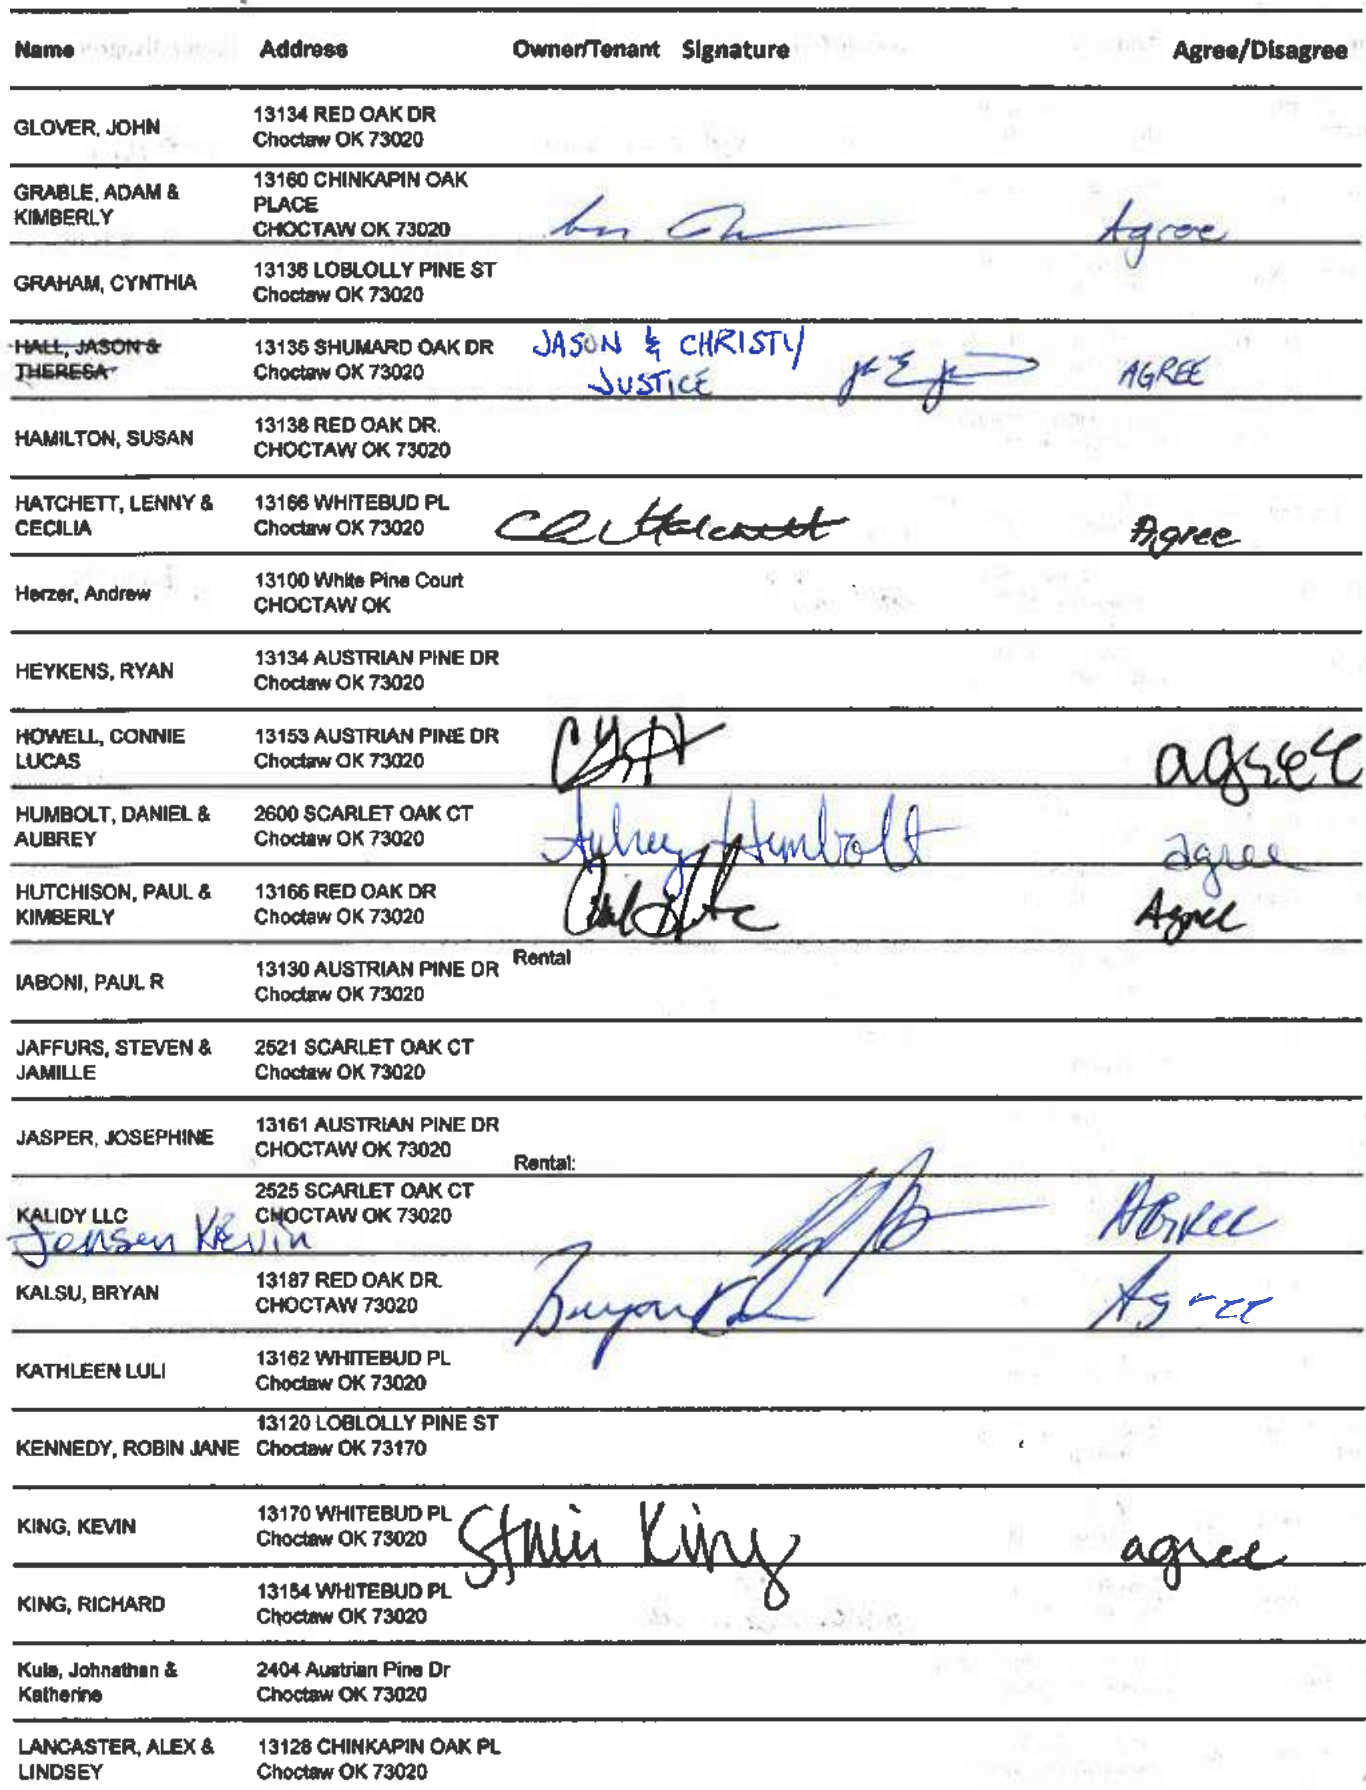 Name Address Owner/Tenant Signature Agree/Disagree
GLOVER, JOHN 13134 RED OAK DR
Choctaw OK 73020
GRABLE, ADAM & 13160 CHINKAPIN OAK
KIMBERLY PLACE
CHOCTAW OK 73020 Agree
GRAHAM, CYNTHIA 13136 LOBLOLLY PINE ST
Choctaw OK 73020
HALL, JASON & 13135 SHUMARD OAK DR JASON & CHRISTY
THERESA Choctaw OK 73020 JUSTICE AGREE
HAMILTON, SUSAN 13138 RED OAK DR.
CHOCTAW OK 73020
HATCHETT, LENNY & 13166 WHITEBUD PL
CECILIA Choctaw OK 73020 Agree
Herzer, Andrew 13100 White Pine Court
CHOCTAW OK
HEYKENS, RYAN 13134 AUSTRIAN PINE DR
Choctaw OK 73020
HOWELL, CONNIE 13153 AUSTRIAN PINE DR
LUCAS Choctaw OK 73020 agree
HUMBOLT, DANIEL & 2600 SCARLET OAK CT
AUBREY Choctaw OK 73020 Aubrey Humbolt agree
HUTCHISON, PAUL & 13166 RED OAK DR
KIMBERLY Choctaw OK 73020 Agree
IABONI, PAUL R 13130 AUSTRIAN PINE DR Rental
Choctaw OK 73020
JAFFURS, STEVEN & 2521 SCARLET OAK CT
JAMILLE Choctaw OK 73020
JASPER, JOSEPHINE 13161 AUSTRIAN PINE DR
CHOCTAW OK 73020 Rental:
KALIDY LLC 2525 SCARLET OAK CT
CHOCTAW OK 73020 AGREE
Jensen Kevin
KALSU, BRYAN 13187 RED OAK DR.
CHOCTAW 73020 Bryan Agree
KATHLEEN LULI 13162 WHITEBUD PL
Choctaw OK 73020
KENNEDY, ROBIN JANE 13120 LOBLOLLY PINE ST
Choctaw OK 73170
KING, KEVIN 13170 WHITEBUD PL
Choctaw OK 73020 King agree
KING, RICHARD 13154 WHITEBUD PL
Choctaw OK 73020
Kula, Johnathan & 2404 Austrian Pine Dr
Katherine Choctaw OK 73020
LANCASTER, ALEX & 13128 CHINKAPIN OAK PL
LINDSEY Choctaw OK 73020